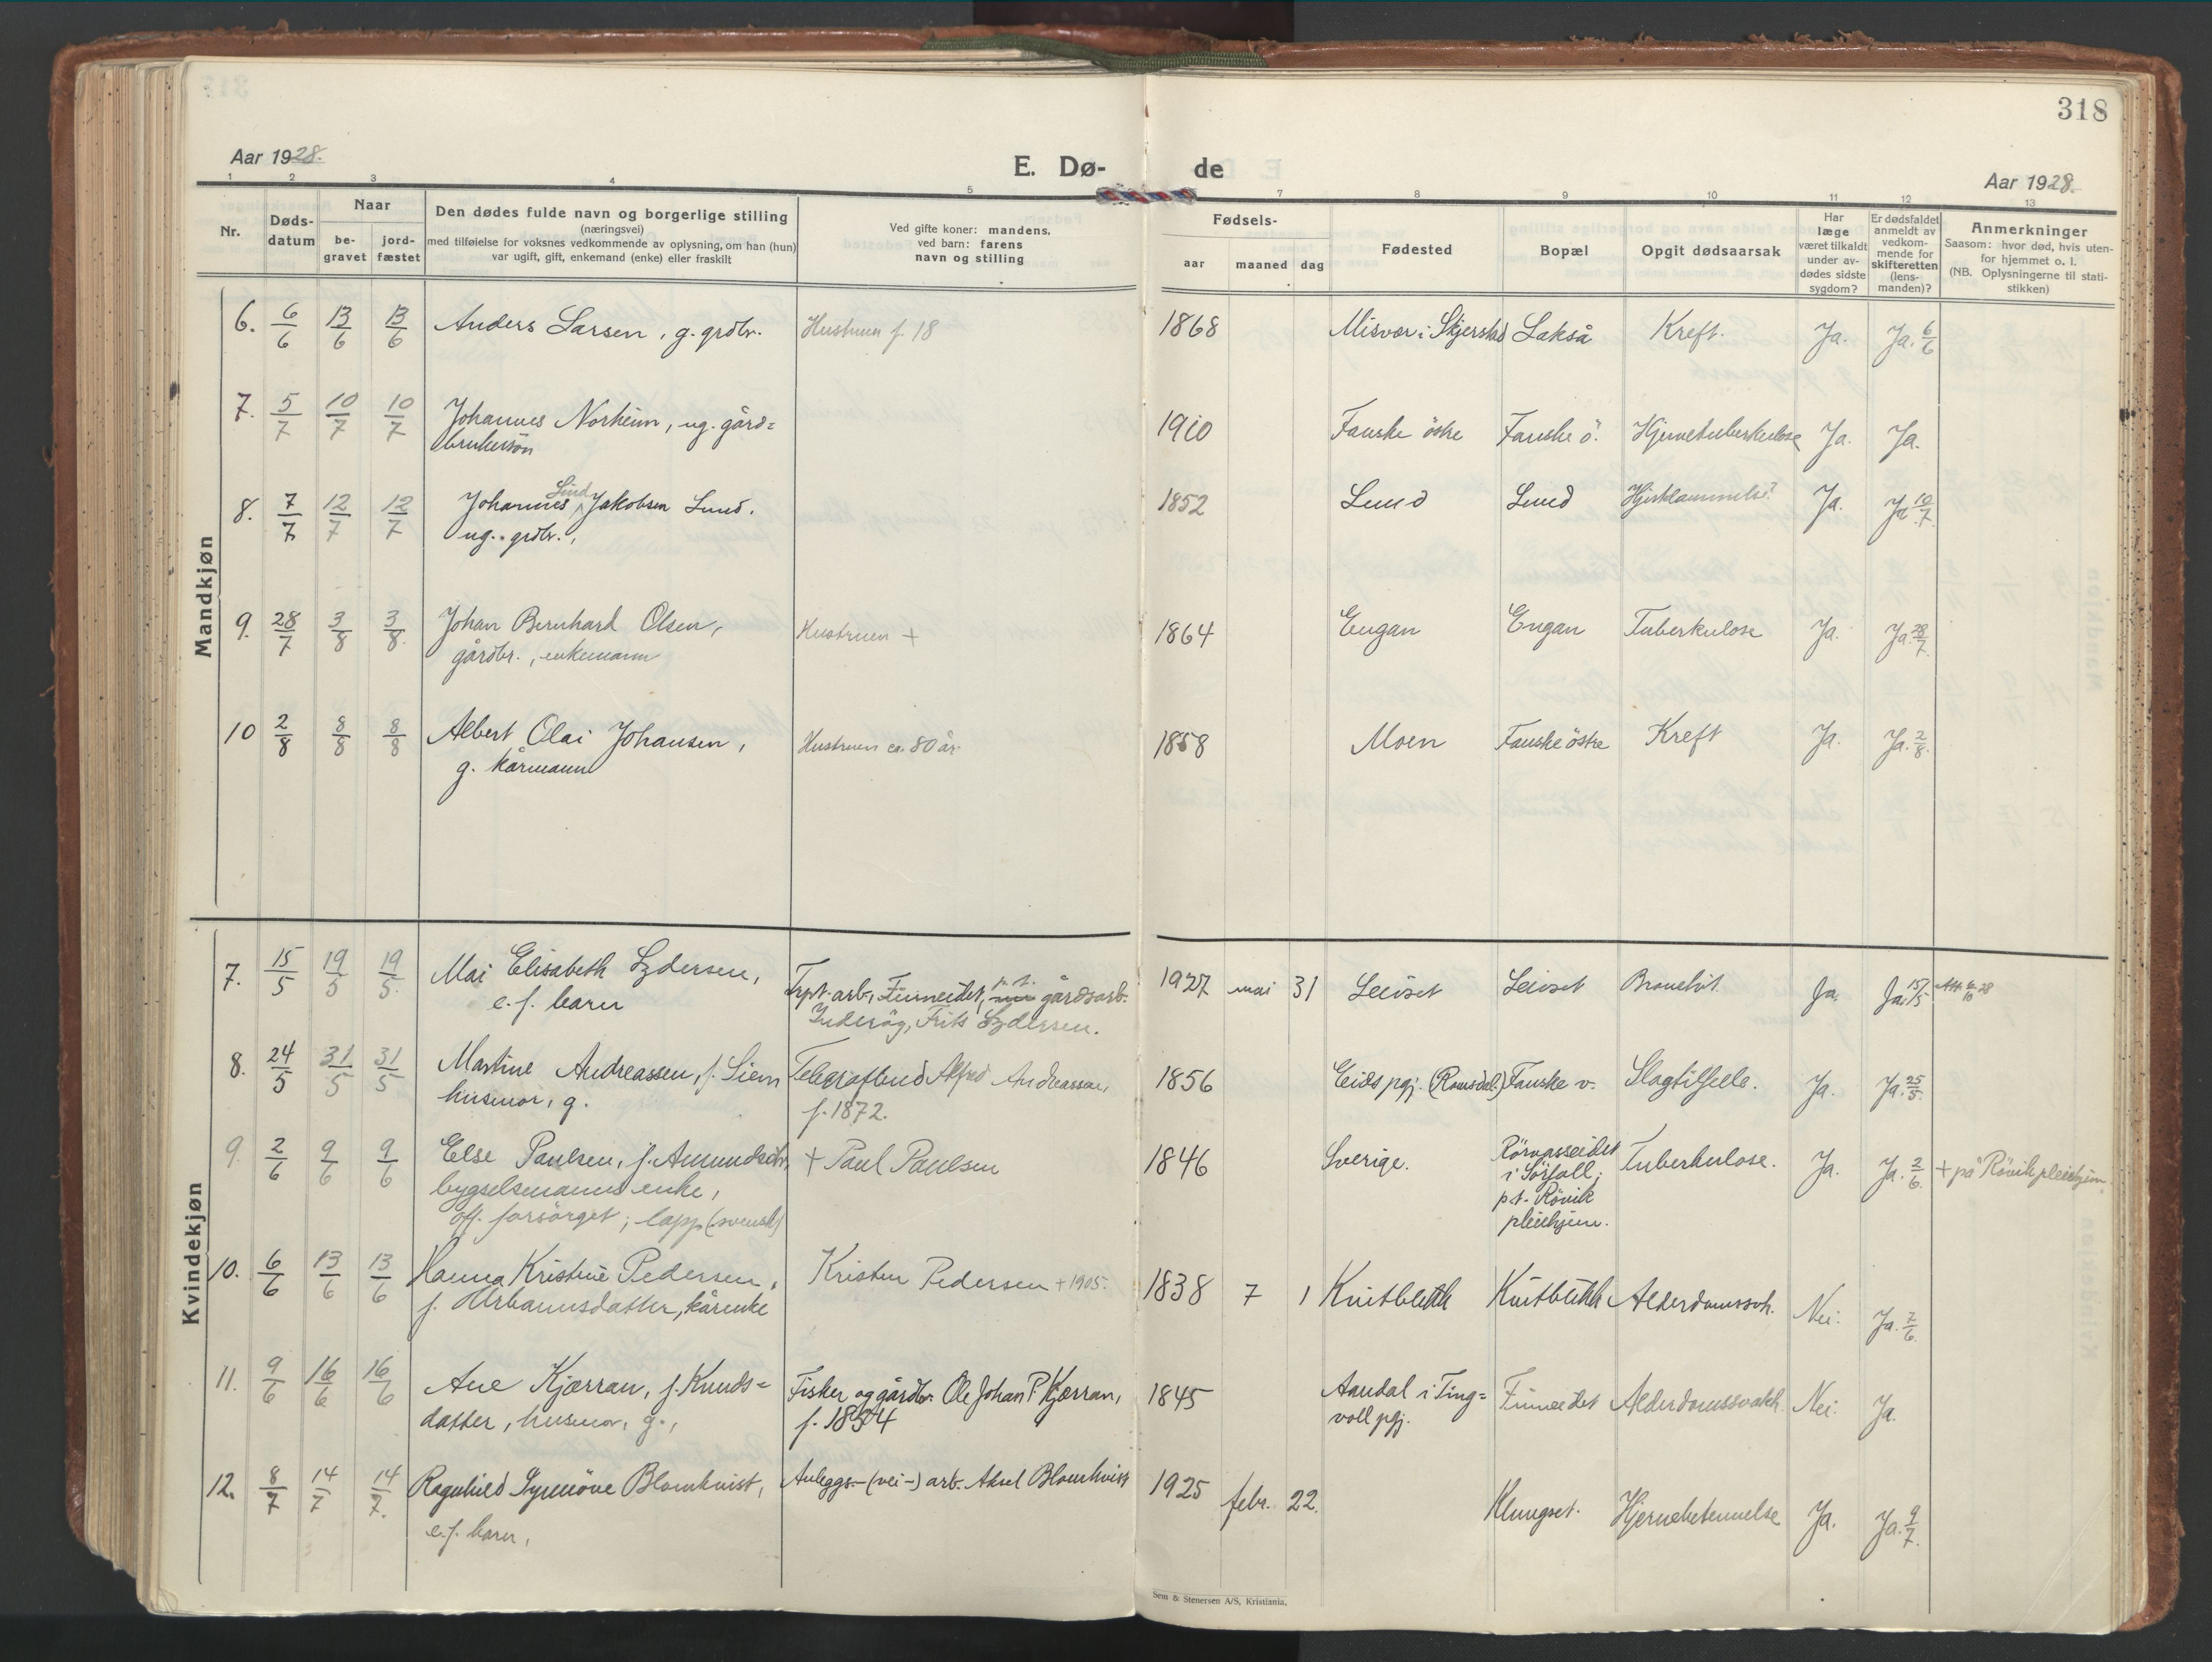 318
Aar 1928.
E. Dø-
de
Aar 1928.
1 2 3 4 5 7 8 9 10 11 12 13
Nr.
Døds-
datum
Naar
be-
gravet
jord-
fæstet
Den dødes fulde navn og borgerlige stilling
(næringsvei)
med tilføielse for voksnes vedkommende av oplysning, om han (hun)
var ugift, gift, enkemand (enke) eller fraskilt
Ved gifte koner: mandens,
ved barn: farens
navn og stilling
Fødsels-
aar maaned dag
Fødested
Bopæl
Opgit dødsaarsak
Har
læge
været tilkaldt
under av-
dødes sidste
sygdom?
Er dødsfaldet
anmeldt av
vedkom-
mende for
skifteretten
(lens-
manden)?
Anmerkninger
Saasom: hvor død, hvis uten-
for hjemmet o. l.
(NB. Oplysningerne til stati-
stikken)
Mandkjøn
6. 6/6 13/6 13/6 Anders Larsen, g. grdbr. Hustruen f. 18 1868 Misvær i Skjerstad Lakså Kreft. Ja. Ja. 6/6
7. 5/7 10/7 10/7 Johannes Norheim, ug. gård= 1910 Fauske östre Fauske ö. Hjernetuberkulose Ja. Ja.
brukersön
Lind
8. 7/7 12/7 12/7 Johannes Jakobsen Lund. 1852 Lund Lund Ja. Ja 10/7
ug. grdbr.,
9. 28/7 3/8 3/8 Johan Bernhard Olsen, Hustruen + 1864 Engan Engan Tuberkulose Ja. Ja. 28/7
gårdbr., enkemann
10 2/8 8/8 8/8 Albert Olai Johansen, Hustruen ca. 80 år 1858 Moen Fauske östre Kreft Ja. Ja. 2/8
g. kårmann
Kvindekjøn
7. 15/5 19/5 19/5 Mai Elisabeth Lydersen, 1927 mai 31 Leivset Leivset Ja. Ja. 15/5
e. f. barn
p. t.
Trpt. arb., Finneidet, gårdsarb.
Inderöy, Frits Lydersen.
8. 24/5 31/5 31/5 Martine Andreassen, f. Siem Telegrafbud Alfred Andreassen, 1856 Eids pgj. (Romsdal.) Fauske v. Slagtilfelle. Ja. Ja. 25/5
husmor, g. f. 1872.
9. 2/6 9/6 9/6 Else Paulsen, f. Amundsdtr, + Paul Paulsen 1846 Sverige. Rörvasseidet Tuberkulose. Ja. Ja. 2/6 + på Rövik pleiehjem.
bygselsmanns enke, i Sörfoll;
off. forsörget; lapp (svensk) p. t. Rövik
pleiehjem.
10. 6/6 13/6 13/6 Hanna Kristine Pedersen, Kristen Pedersen + 1905. 1838 7 1 Kvitblikk Kvitblikk Alderdomssvk. Nei. Ja. 7/6
f. Urbanusdatter, kårenke
11. 9/6 16/6 16/6 Ane Kjærran, f. Knuds= Fisker og gårdbr. Ole Johan P. Kjærran, 1845 Aandal i Ting= Finneidet Alderdomssvakh. Nei. Ja.
datter, husmor, g., f. 1854 voll pgj.
12. 8/7 14/7 14/7 Ragnhild Synnöve Blomkvist, Anleggs-(vei-) arb. Aksel Blomkvist 1925 febr. 22. Klungset. Hjernebetennelse Ja. Ja. 9/7
e. f. barn,
Sem & Stenersen A/S, Kristiania.